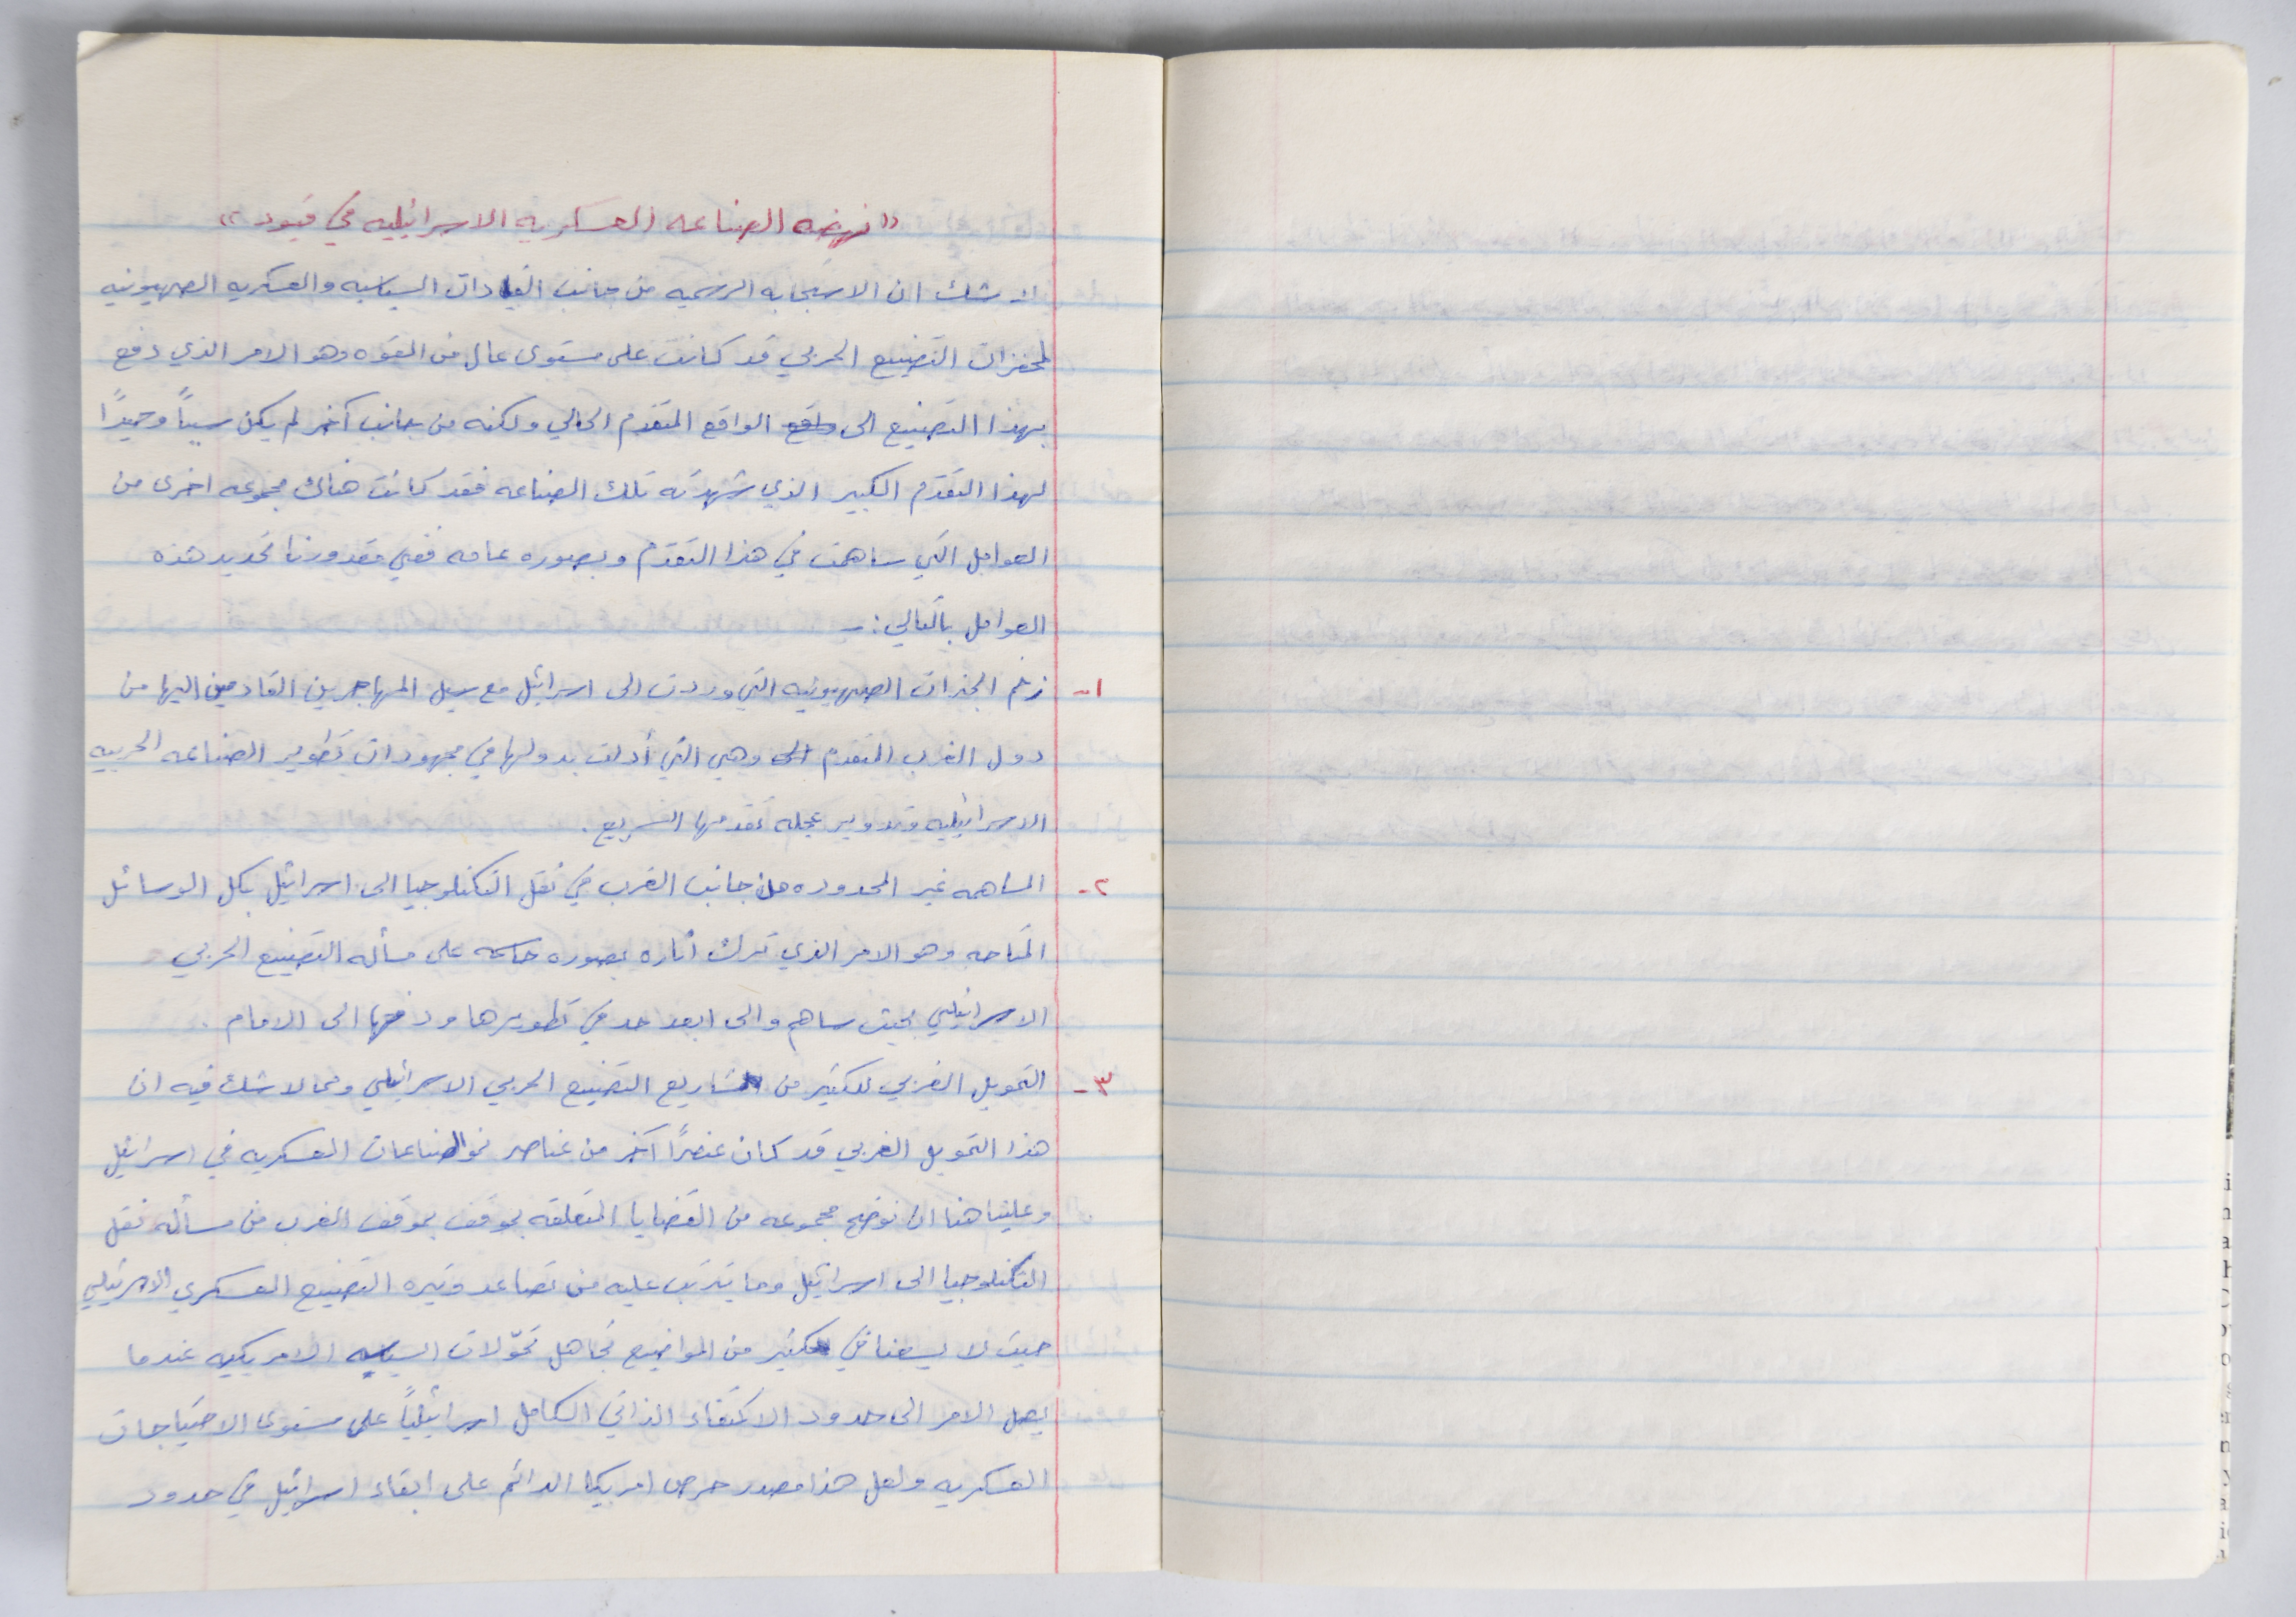 «نهضه الصناعه العسكريه الاسرائيليه في قيود»
لا شك ان الاستجابه الرسميه من جانب القيادات السياسيه والعسكريه الصهيونيه
لمحفزات التصنيع الحربي قد كانت على مستوى عال من القوه وهو الامر الذي دفع
بهذا التصنيع الى واقع الواقع المتقدم الحالي ولكنه من جانب آخر لم يكن سبباً وحيداً
لهذا التقدم الكبير الذي شهدته تلك الصناعه فقد كانت هناك مجموعه اخرى من
العوامل التي ساهمت في هذا التقدم وبصوره عامه ففي مقدورنا تحديد هذه
العوامل بالتالي :-
١- زخم الخبرات الصهيونيه التي وردت الى اسرائيل مع سيل المهاجرين القادمين اليها من
دول الغرب المتقدم وهي التي أدلت بدولها في مجهودات تطوير الصناعه الحربيه
الاسرائيليه وتدوير عجله تقدمها السريع .
٢- المساهمه غير المحدوده من جانب الغرب في نقل التكنلوجيا الى اسرائيل بكل الوسائل
المتاحه وهو الامر الذي ترك اثاره بصوره حاسمه على مسأله التصنيع الحربي
الاسرائيلي بحيث ساهم والى ابعد حد في تطويرها ودفعها الى الامام .
٣- التمويل الغربي للكثير من مشاريع التصنيع الحربي الاسرائيلي ومما لا شك فيه ان
هذا التمويل الغربي قد كان عنصراً آخر من عناصر نمو الصناعات العسكريه في اسرائيل
وعلينا هنا ان نوضح مجموعه من القضايا المتعلقه بموقف بموقف الغرب من مسأله نقل
التكنلوجيا الى اسرائيل وما يترتب عليه من تصاعد وتيره التصنيع العسكري الاسرائيلي
حيث لا يسعنا في كثير من المواضيع تجاهل تحوّلات السياسه الامريكيه عندما
يصل الامر الى حدود الاكتفاء الذاتي الكامل اسرائيلياً على مستوى الاحتياجات
العسكريه ولعل هذا مصدر حرص امريكا الدائم على ابقاء اسرائيل في حدود